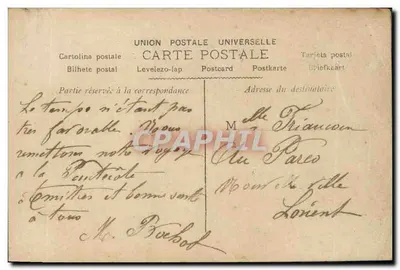 UNION POSTALE UNIVERSELLE
CARTE POSTALE
Cartolina postale Tarjeta postal
Bilhete postal Levelezo-lap Postcard Postkarte Briefkaart
Partie réservée à la correspondance
Adresse du destinataire
Le temps n'étant pas
très favorable Nous
remettons notre voyage
à la Pentecôte
Amitiés et bonne santé
à tous
M. Rochat
Melle
Au Parco
Lorient
CPAPHIL